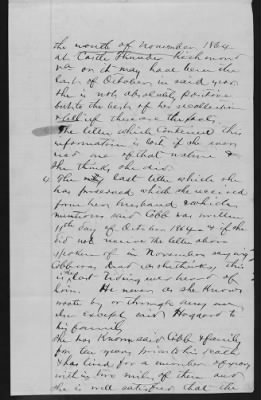 the month of November 1864
at Castle Thunder Richmond
Va or it may had been the
last of October in said year
she is not absolutely positive
but to the best of her recollection
& belief these are the facts.
The letter which contained this
information is lost if she ever
had one of that nature &
she thinks she did
4 The last letter which she
has preserved which she received
from her husband & which
mentions said Cobb was written
11th day of October 1864 & if she
did not receive the letter above
spoken of in November saying
Cobb was dead as she thinks this
is last tidings ever heard of
him. He never as she knows
wrote by or through any one
else except said Hoggard to
his family
She has known said Cobb & family
for ten years prior to his death
& has lived for a number of years
within two miles of them and
she is well satisfied that the